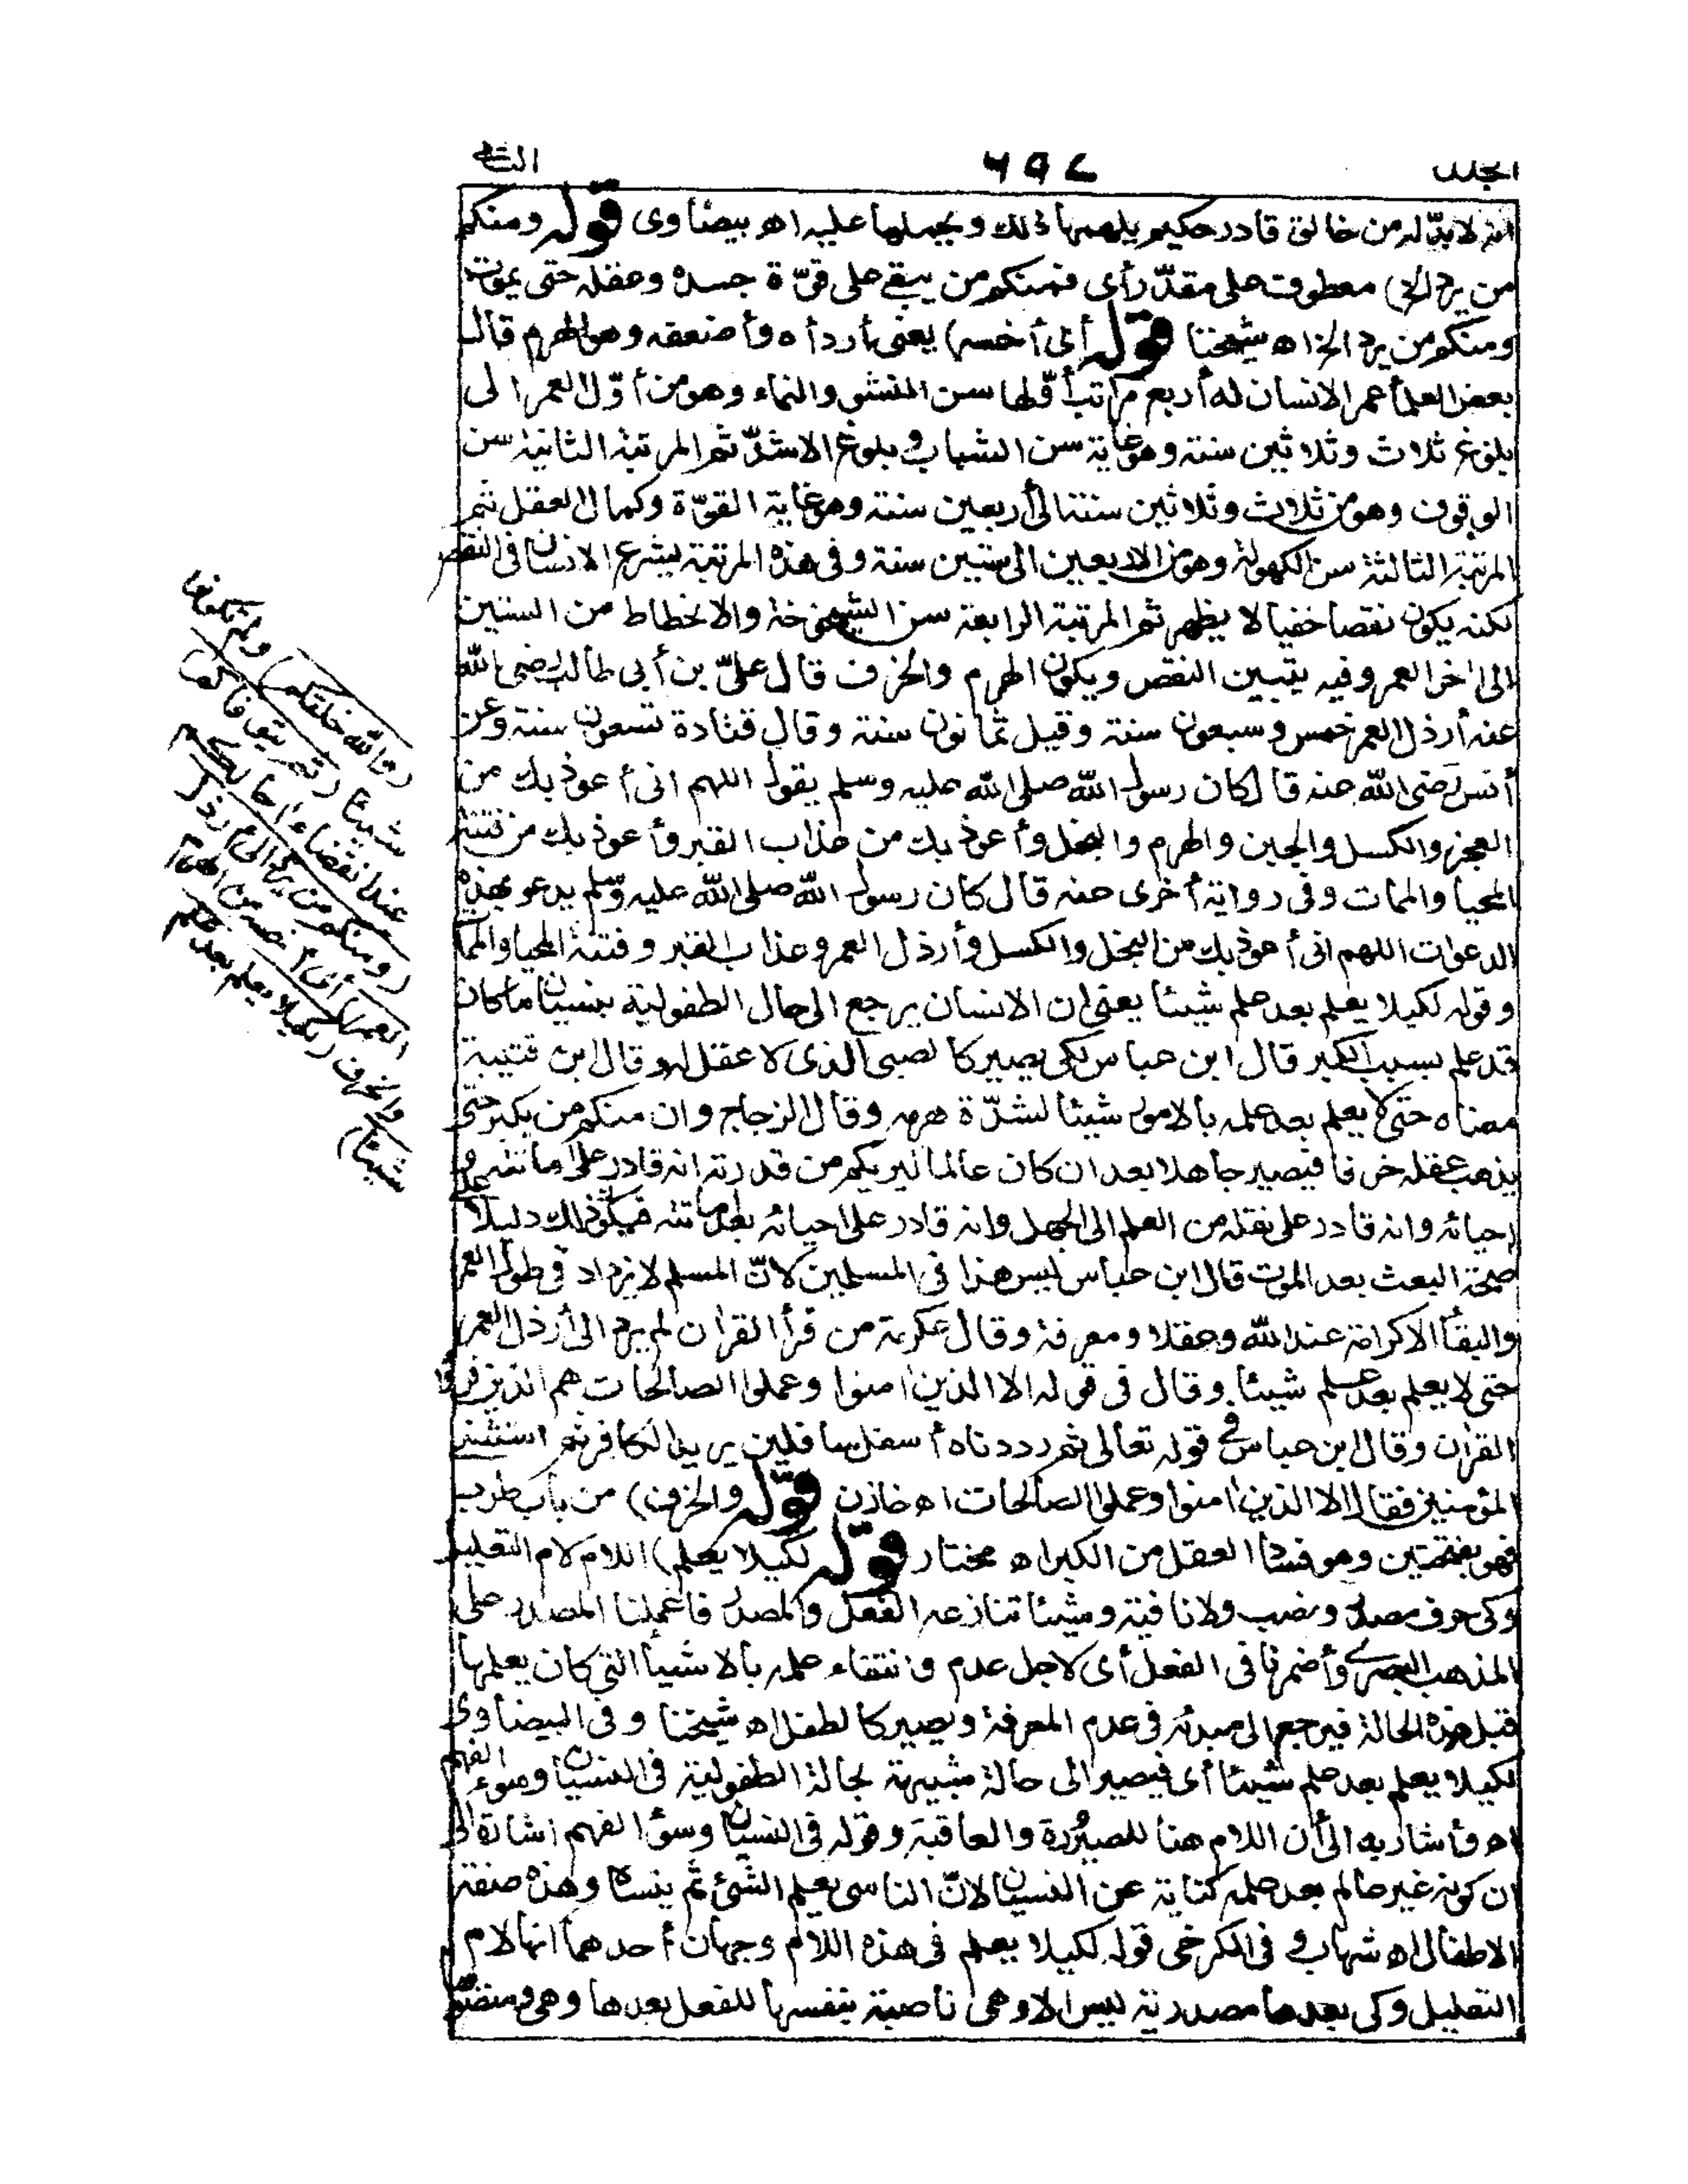 المجلد ٦٩٤ الثاني
انه لا بدّ له من خالق قادر حكيم يلهمها ذلك ويحملها عليه اه بيضاوى قوله ومنكم
من يرد الخ) معطوف على مقدّر أى فمنكم من يبقى على قوّة جسده وعقله حتى يموت
ومنكم من يرد الخ اه شيخنا قوله أى أخسه) يعنى أردأه وأضعفه وهو الهرم قال
بعض العلمأ عمر الانسان له أربع مراتب أوّلها سن المنشئ والنماء وهو من أوّل العمر الى
بلوغ ثلاث وثلاثين سنة وهو غاية سن الشباب وبلوغ الاشدّ ثم المرتبة الثانية سن
الوقوف وهو من ثلاث وثلاثين سنة الى أربعين سنة وهو غاية القوّة وكمال العقل ثم
المرتبة الثالثة سن الكهولة وهو من الاربعين الى ستين سنة وفى هذه المرتبة يشرع الانسان فى النقص
لكنه يكون نقصا خفيا لا يظهر ثم المرتبة الرابعة سن الشيخوخة والانحطاط من الستين
الى اخر العمر وفيه يتبين النقص ويكون الهرم والخرف قال علىّ بن أبى طالب رضى الله
عنه أرذل العمر خمس وسبعون سنة وقيل ثمانون سنة وقال قتادة تسعون سنة وعن
أنس رضى الله عنه قال كان رسول الله صلى الله عليه وسلم يقول اللهم انى أعوذ بك من
العجز والكسل والجبن والهرم والبخل وأعوذ بك من عذاب القبر وأعوذ بك من فتنة
المحيا والممات وفى رواية أخرى عنه قال كان رسول الله صلى الله عليه وسلم يدعو بهذه
الدعوات اللهم انى أعوذ بك من البخل والكسل وأرذل العمر وعذاب القبر وفتنة المحيا والممات
وقوله لكيلا يعلم بعد علم شيئا يعنى ان الانسان يرجع الى حال الطفولية بنسيان ما كان
قد علم بسبب الكبر قال ابن عباس لكى يصير كالصبى الذى لا عقل له وقال ابن قتيبة
معناه حتى لا يعلم بعد علمه بالامور شيئا لشدّة هرمه وقال الزجاج وان منكم من يكبر حتى
يذهب عقله خرفا فيصير جاهلا بعد ان كان عالما ليريكم من قدرته انه قادر على اماتته و
احيائه وانه قادر على نقله من العلم الى الجهل وانه قادر على احيائه بعد اماتته فيكون ذلك دليلا على
صحة البعث بعد الموت قال ابن عباس ليس هذا فى المسلمين لانّ المسلم لا يزداد فى طول العمر
والبقأ الا كرامة عند الله وعقلا ومعرفة وقال عكرمة من قرأ القران لم يرد الى أرذل العمر
حتى لا يعلم بعد علم شيئا وقال فى قوله الا الذين امنوا وعملوا الصالحات هم الذين قرؤا
القران وقال ابن عباس فى قوله تعالى ثم رددناه أسفل سافلين يريد الكافر ثم استثنى
المؤمنين فقال الا الذين امنوا وعملوا الصالحات اه خازن قوله والخرف) من باب طرب
فهو بفتحتين وهو فساد العقل من الكبر اه مختار قوله لكيلا يعلم) اللام لام التعليل
وكى حرف مصدر ونصب ولا نافية وشيئا تنازعه الفعل والمصدر فاعملنا المصدر على
المذهب البصرى وأضمرنا فى الفعل أى لاجل عدم وانتفاء علمه بالاشيأ التى كان يعلمها
قبل هذه الحالة فيرجع الى مبدئه فى عدم المعرفة ويصير كالطفل اه شيخنا وفى البيضاوى
لكيلا يعلم بعد علم شيئا أى فيصير الى حالة شبيهة بحالة الطفولية فى النسيان وسوء الفهم
اه وأشار به الى أن اللام هنا للصيرورة والعاقبة وقوله فى النسيان وسؤ الفهم اشارة الى
ان كونه غير عالم بعد علمه كناية عن النسيان لانّ الناسى يعلم الشئ ثم ينساه وهذه صفة
الاطفال اه شهاب وفى الكرخى قوله لكيلا يعلم فى هذه اللام وجهان أحدهما انها لام
التعليل وكى بعدها مصدرية ليس الا وهى ناصبة بنفسها للفعل بعدها وهى ومنصوبها
(والله خلقكم) ولم تكونوا
شيئا (ثم يتوفاكم)
عند انقضاء اجالكم
(ومنكم من يرد الى أرذل
العمر) أى أخسه من الهرم
والخرف (لكيلا يعلم بعد علم
شيئا)